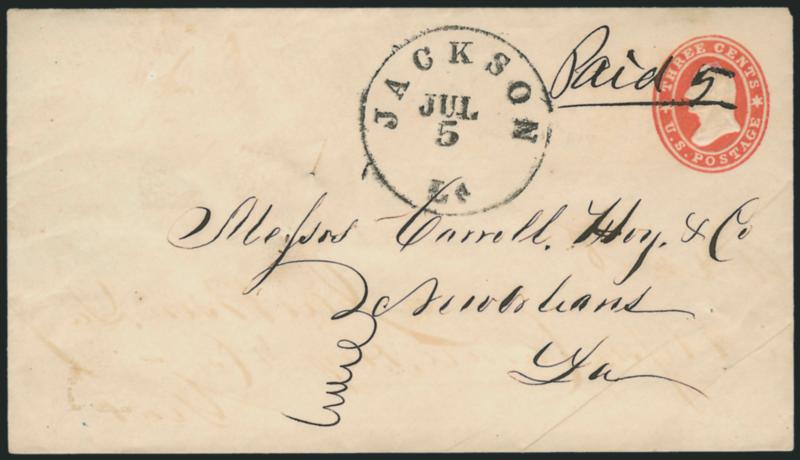 JACKSON
JUL
5
La
Paid 5
THREE CENTS
U.S. POSTAGE
Messrs Carroll, Hoy, & Co
New Orleans
La